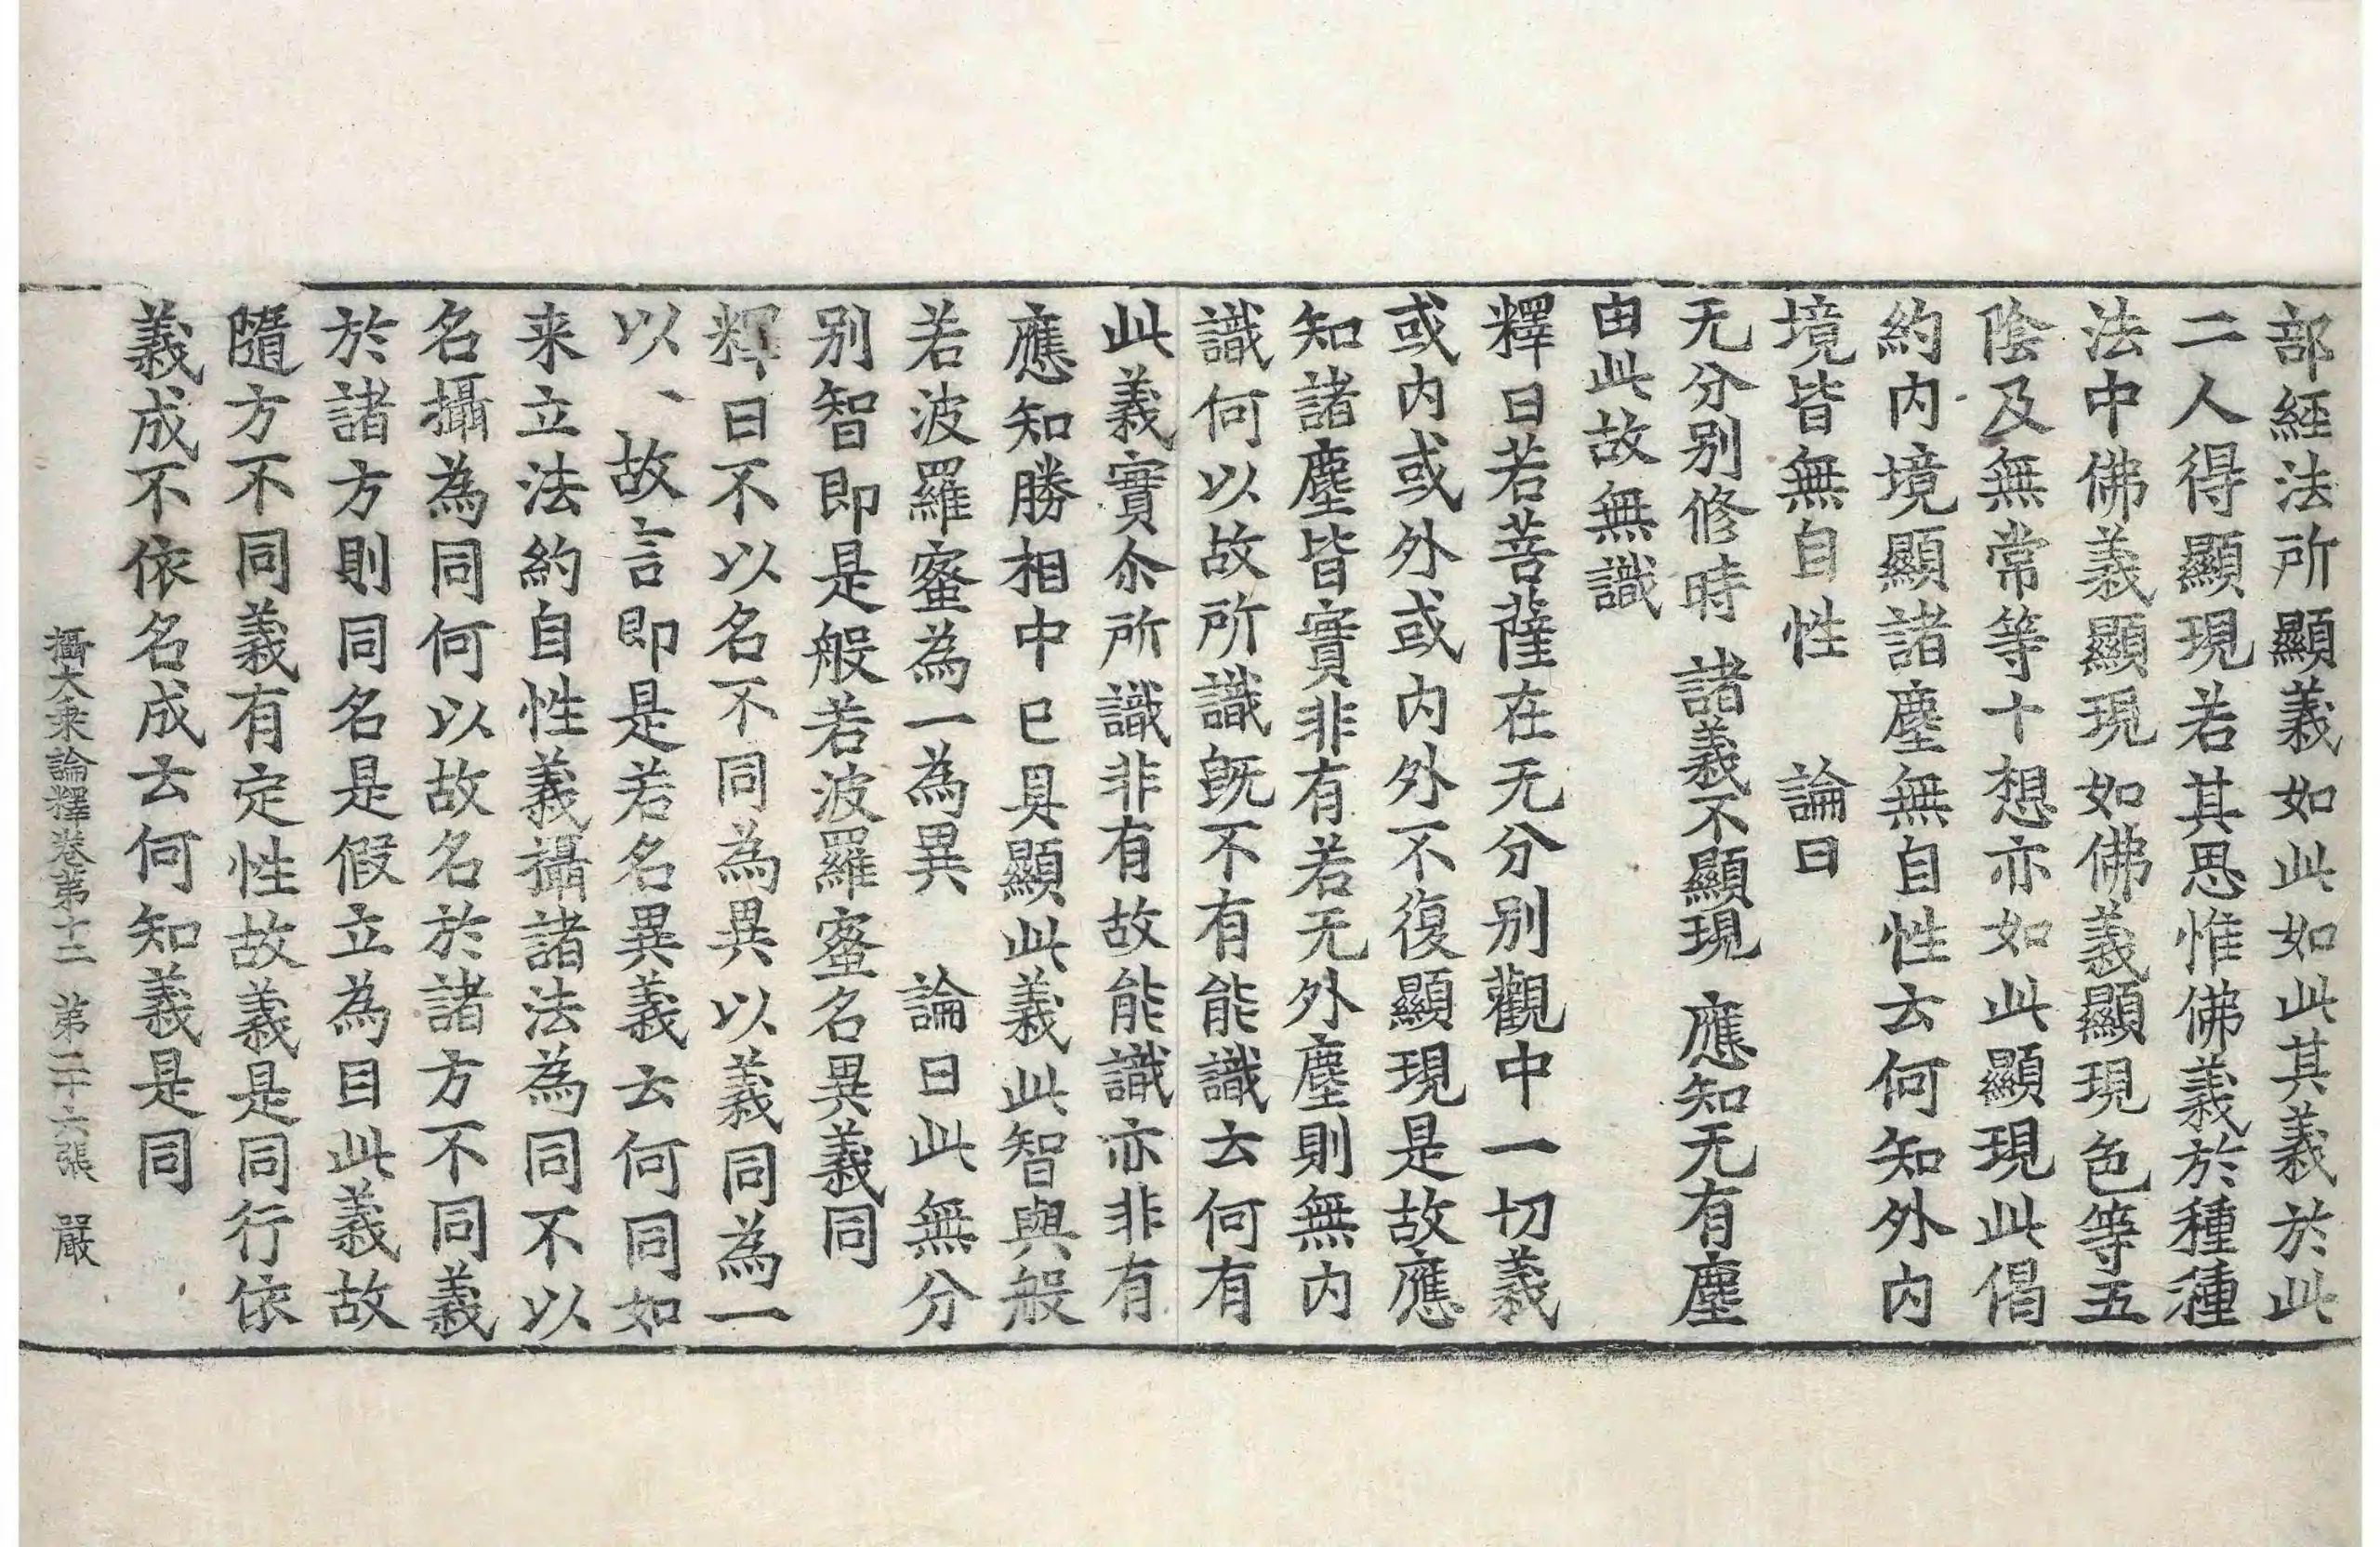 部經法所顯義如此如此其義於此
二人得顯現若其思惟佛義於種種
法中佛義顯現如佛義顯現色等五
陰及無常等十想亦如此顯現此偈
約內境顯諸塵無自性云何知外內
境皆無自性　論曰
无分別修時　諸義不顯現　應知无有塵
由此故無識
釋曰若菩薩在无分別觀中一切義
或內或外或內外不復顯現是故應
知諸塵皆實非有若无外塵則無內
識何以故所識既不有能識云何有
此義實尒所識非有故能識亦非有
應知勝相中已具顯此義此智與般
若波羅蜜為一為異　論曰此無分
別智即是般若波羅蜜名異義同
釋曰不以名不同為異以義同為一
以、故言即是若名異義云何同如
来立法約自性義攝諸法為同不以
名攝為同何以故名於諸方不同義
於諸方則同名是假立為目此義故
隨方不同義有定性故義是同行依
義成不依名成云何知義是同
攝大乗論釋卷第十二　第二十六張　嚴